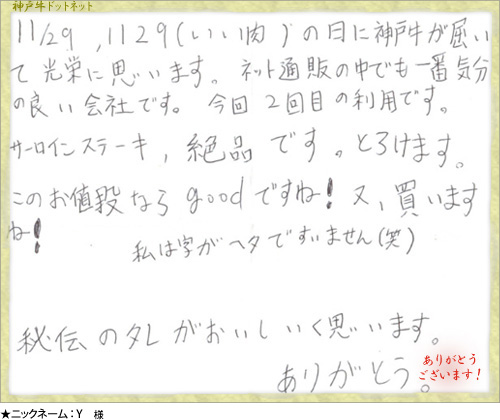 神戸牛ドットネット
11/29 , 1129(いい肉)の日に神戸牛が届い
て光栄に思います。ネット通販の中でも一番気分
の良い会社です。今回2回目の利用です。
サーロインステーキ,絶品です。とろけます。
このお値段なら goodですね!又、買います
ね!
私は字がヘタですいません(笑)
秘伝のタレがおいしいく思います。
ありがとう。
ありがとう
ございます!
★ニックネーム:Y 様